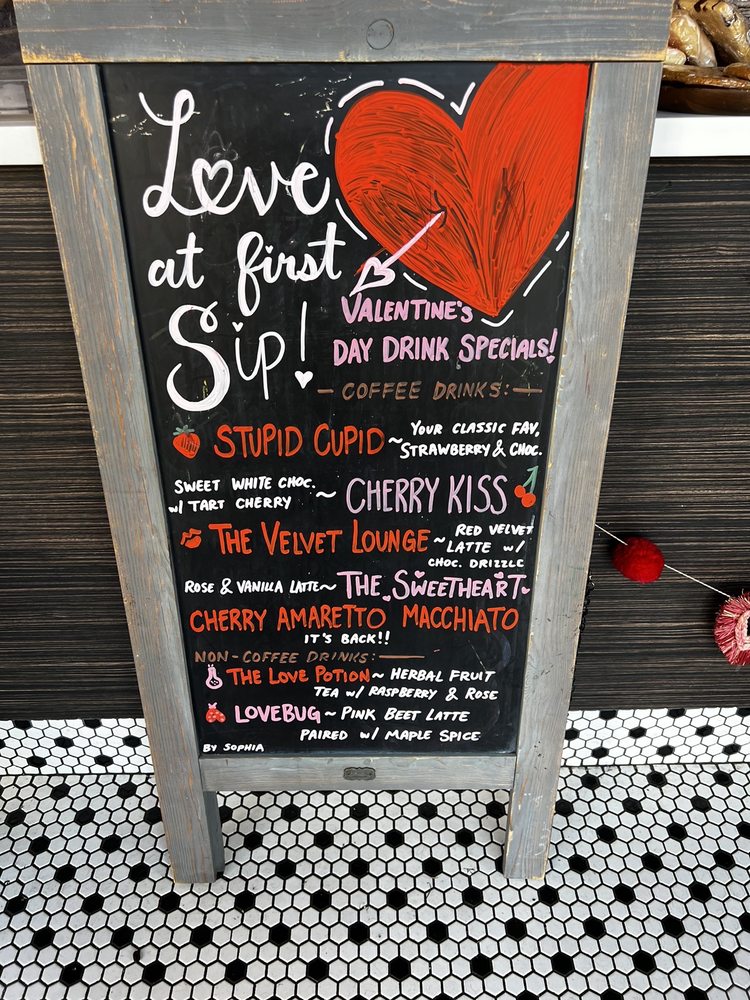 Love
at first
Sip!
VALENTINE'S
DAY DRINK SPECIALS!
— COFFEE DRINKS: —
STUPID CUPID ~ YOUR CLASSIC FAV,
STRAWBERRY & CHOC.
SWEET WHITE CHOC.
w/ TART CHERRY ~ CHERRY KISS
THE VELVET LOUNGE ~ RED VELVET
LATTE w/
CHOC. DRIZZLE
ROSE & VANILLA LATTE ~ THE SWEETHEART
CHERRY AMARETTO MACCHIATO
IT'S BACK!!
NON-COFFEE DRINKS: —
THE LOVE POTION ~ HERBAL FRUIT
TEA w/ RASPBERRY & ROSE
LOVEBUG ~ PINK BEET LATTE
PAIRED w/ MAPLE SPICE
BY SOPHIA